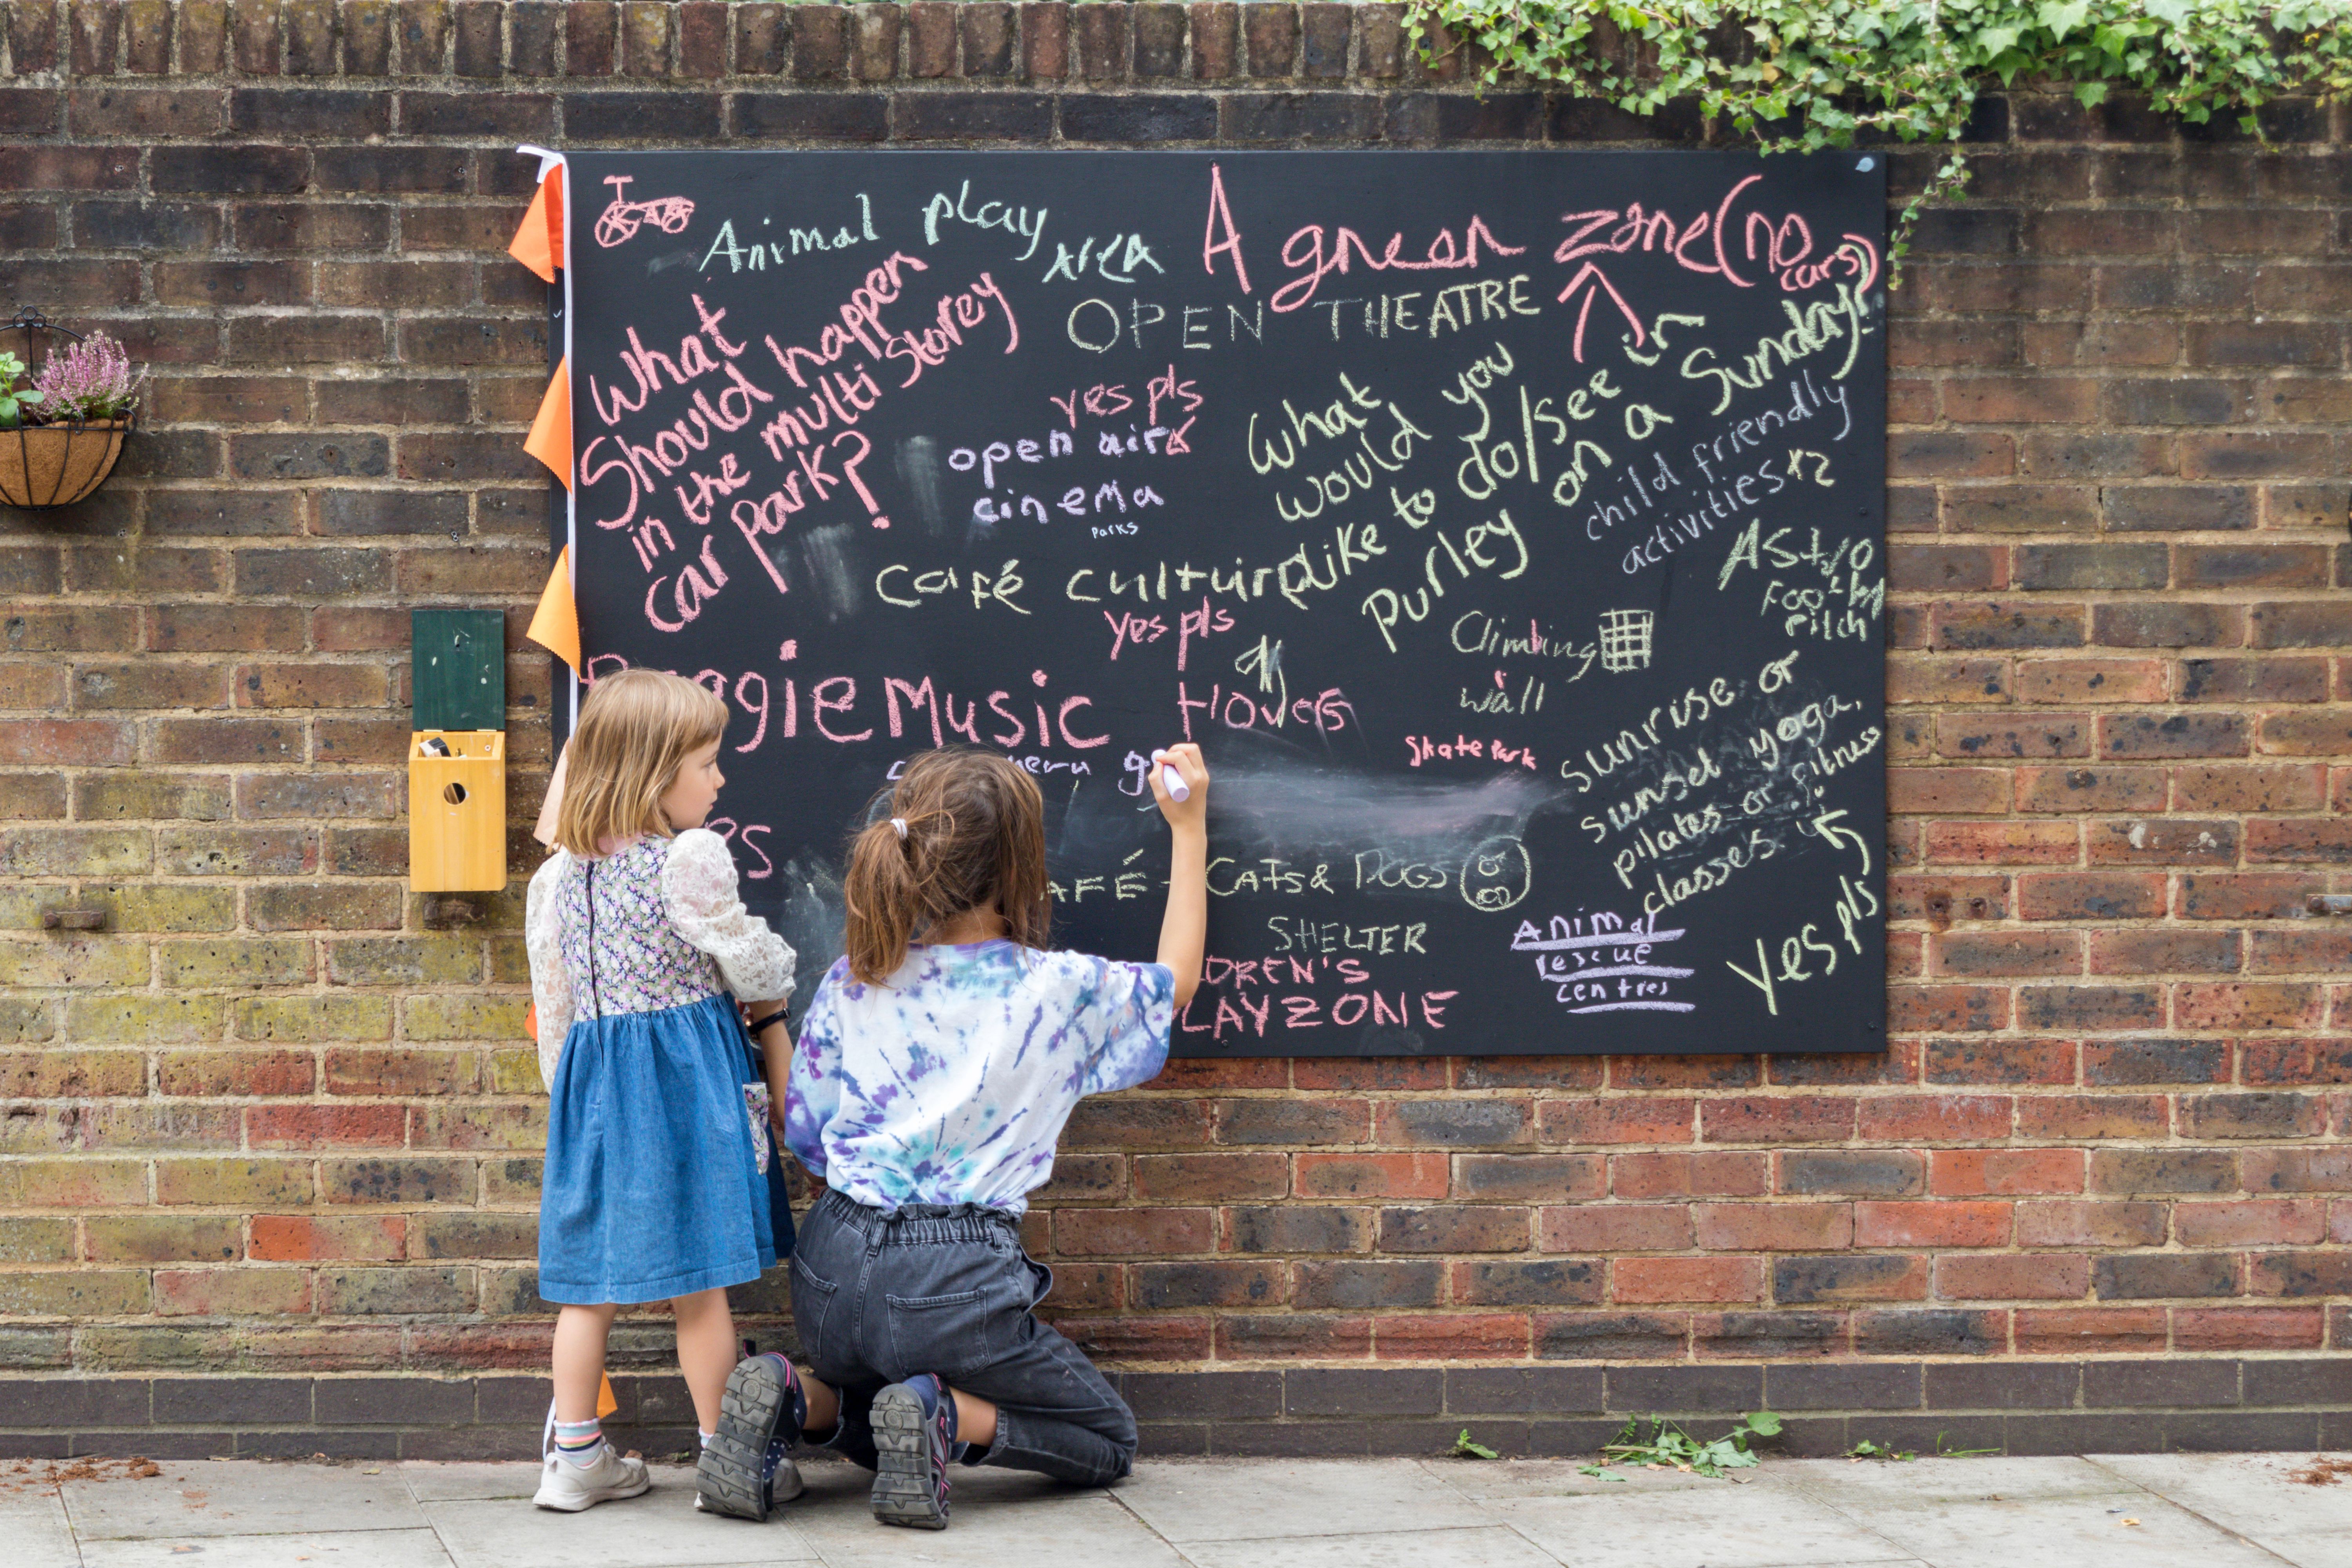 Animal play
Area
A green zone (no
cars)
What
Should happen
in the multi storey
car park?
OPEN THEATRE
yes pls
open air
cinema
Parks
What would you
like to do/see in
Purley on a Sunday?
child friendly
activities x2
Astro
Football
Pitch
Café culture
yes pls
Climbing
wall
Music
flowers
Skate Park
sunrise or
sunset yoga,
pilates or fitness
classes
yes pls
AFÉ - CATS & DOGS
SHELTER
DREN'S
LAYZONE
Animal
rescue
centres